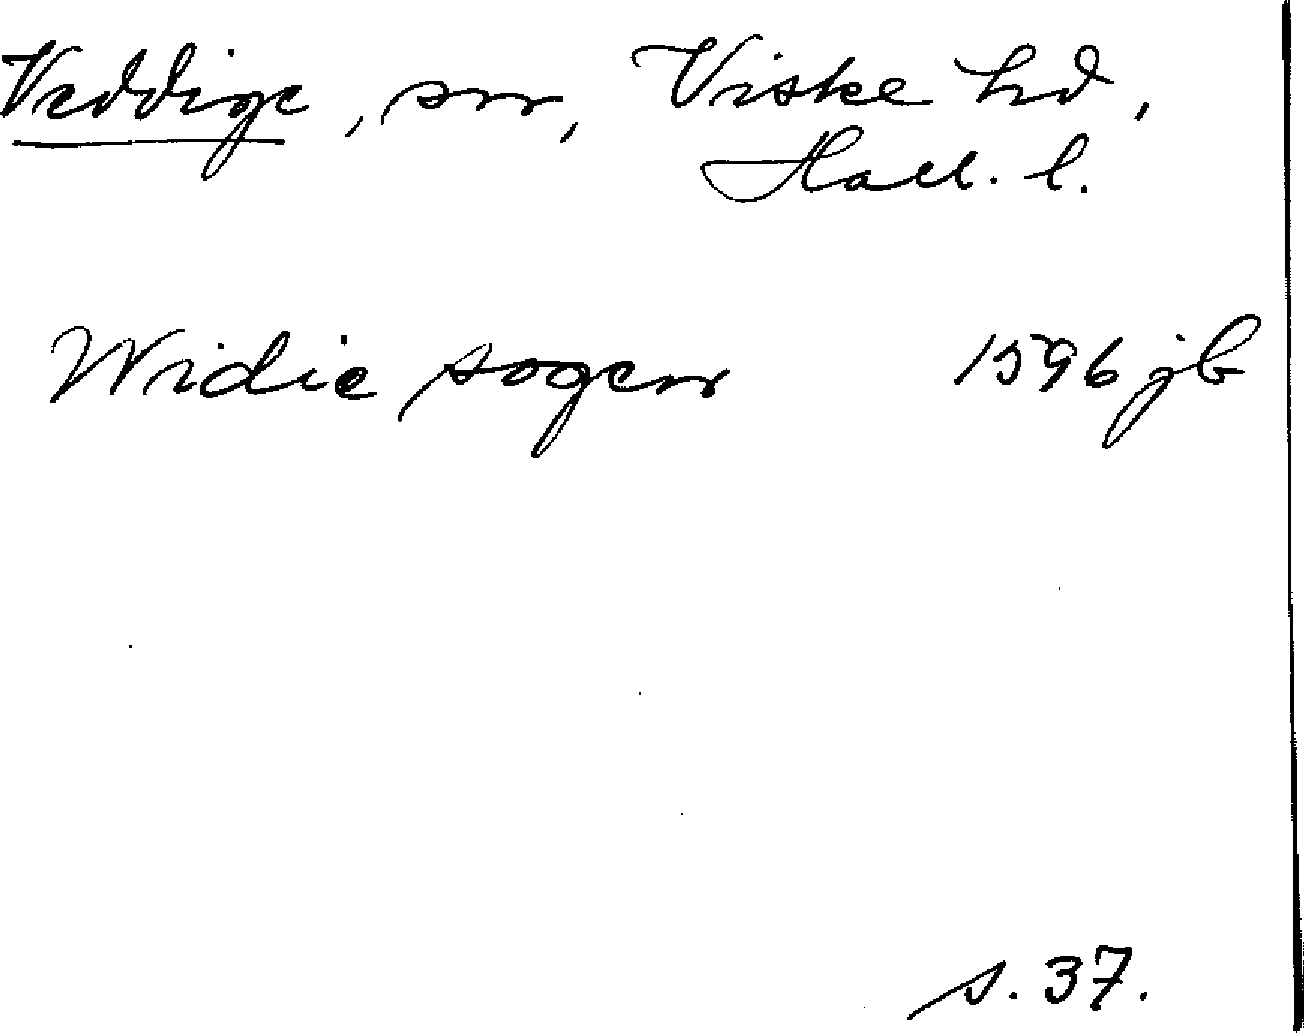 Veddige, sn, Viske hd,
Hall. l.
Widie sogen 1596 jb
s. 37.